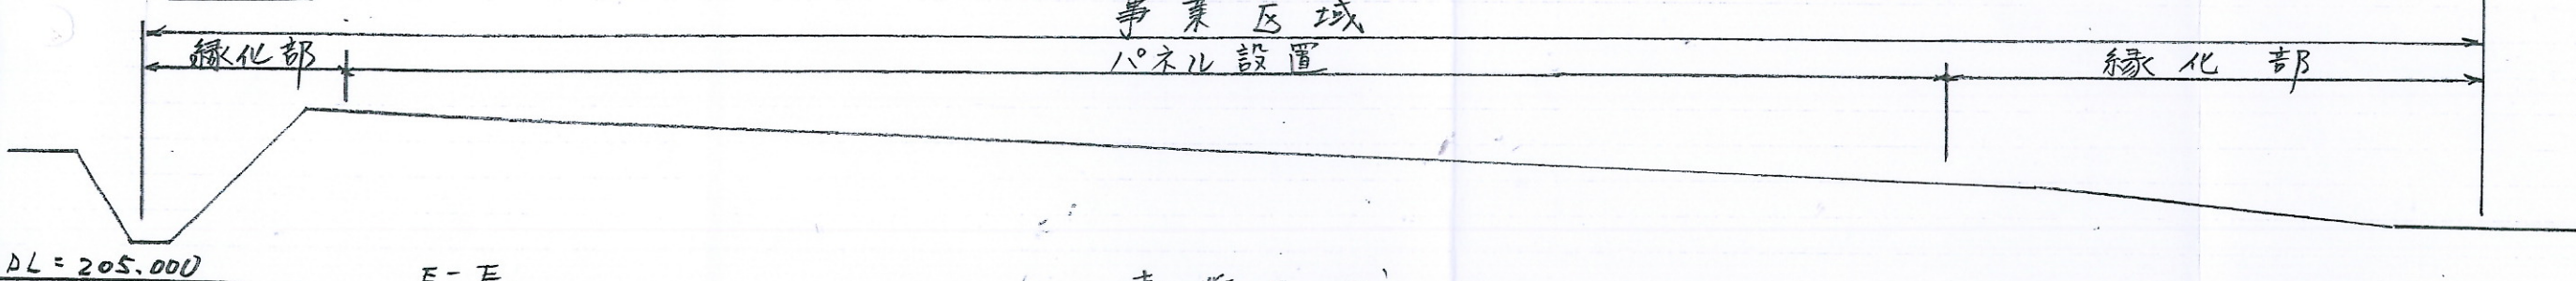 事業区域
緑化部 パネル設置 緑化部
DL=205.000
E-E